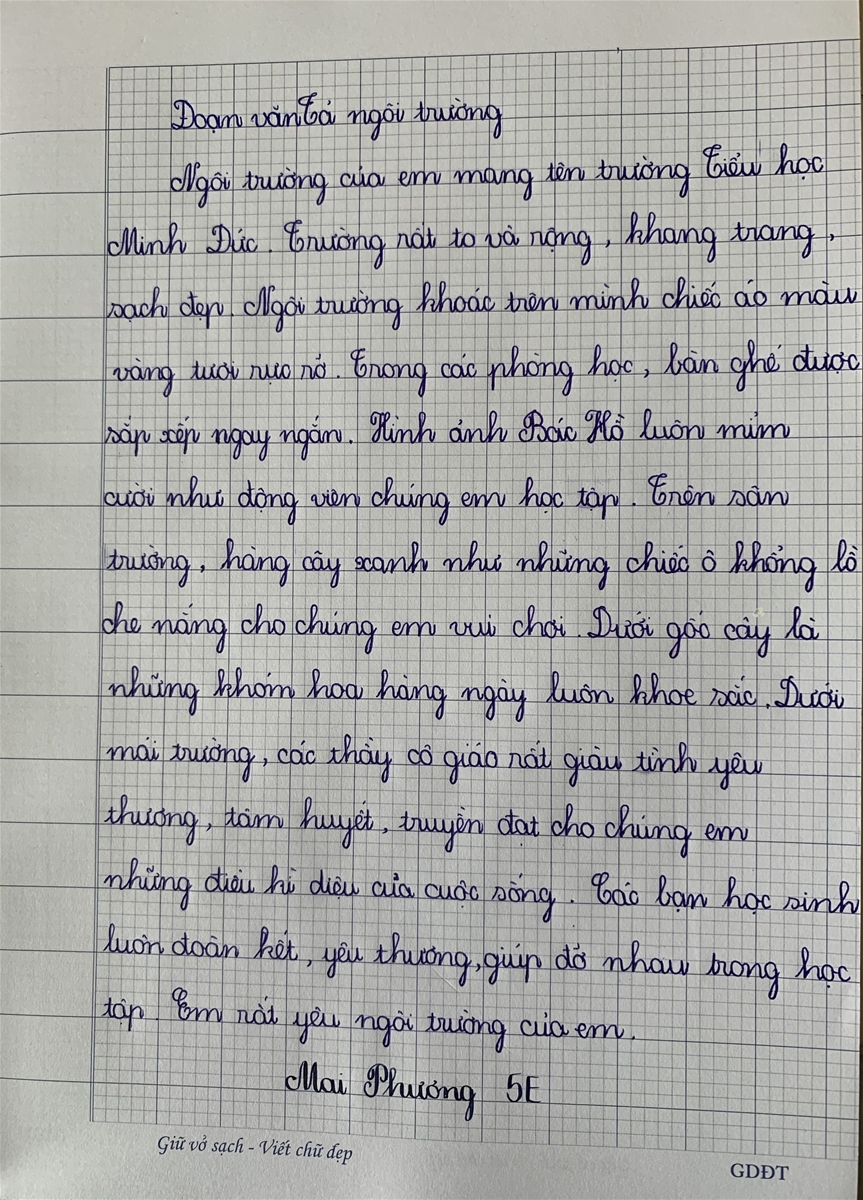 Đoạn văn tả ngôi trường
Ngôi trường của em mang tên trường Tiểu học
Minh Đức. Trường rất to và rộng, khang trang,
sạch đẹp. Ngôi trường khoác trên mình chiếc áo màu
vàng tươi rực rỡ. Trong các phòng học, bàn ghế được
sắp xếp ngay ngắn. Hình ảnh Bác Hồ luôn mỉm
cười như động viên chúng em học tập. Trên sân
trường, hàng cây xanh như những chiếc ô khổng lồ
che nắng cho chúng em vui chơi. Dưới gốc cây là
những khóm hoa hàng ngày luôn khoe sắc. Dưới
mái trường, các thầy cô giáo rất giàu tình yêu
thương, tâm huyết, truyền đạt cho chúng em
những điều kì diệu của cuộc sống. Các bạn học sinh
luôn đoàn kết, yêu thương, giúp đỡ nhau trong học
tập. Em rất yêu ngôi trường của em.
Mai Phương 5E
Giữ vở sạch - Viết chữ đẹp
GDĐT